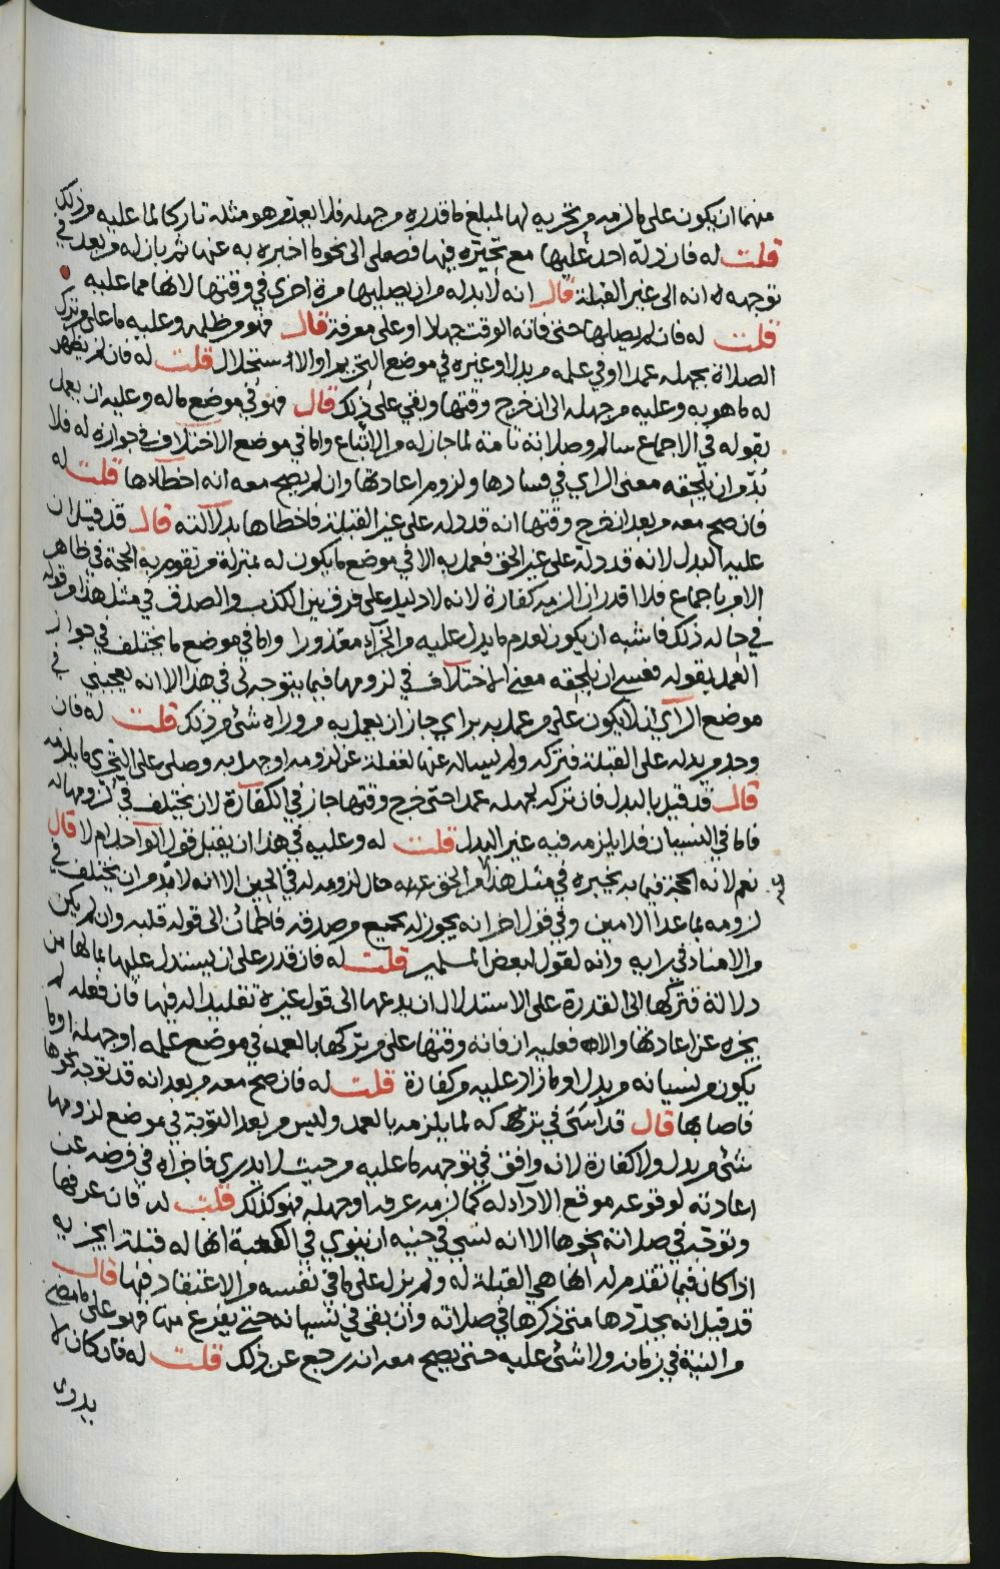 منهما ان يكون على ما لزمه من تحريه لها لمبلغ ما قدره من جهله فلا يعذر هو مثله تاركا لما عليه من ذلك
قلت له فان دله احد عليها مع تحيره فيها فصلى الى نحو ما اخبره به عنها ثم بان له من بعد في
توجهه له انه الى غير القبلة قال انه لا بد له من ان يصليها مرة اخرى في وقتها لانها مما عليه
قلت له فان لم يصليها حتى فاته الوقت جهلا او على معرفة قال فهو من ظلمه وعليه ما على من ترك
الصلاة بجهله عمدا او في علمه من بدل او غيره في موضع التحريم او الاستحلال قلت له فان لم يظهر
له ما هو به وعليه من جهله الى ان خرج وقتها وبقي على ذلك قال فهو في موضع ماله وعليه ان يعمل
بقوله في الاجماع سالم وصلاته تامة لما جاز له من الاتباع واما في موضع الاختلاف في جوازه له فلا
بد من ان يلحقه معنى الراي في فسادها ولزوم اعادتها وان لم يصح معه انه اخطاها قلت له
فان صح معه من بعد ان خرج وقتها انه قد دله على غير القبلة فاخطاها بدلالته قال قد قيل ان
عليه البدل لانه قد دله على غير الحق فعمل به الا في موضع ما يكون له بمنزلة من تقوم به الحجة في ظاهر
الامر باجماع فلا اقدر ان الزمه كفارة لانه لا دليل على فرق بين الكذب والصدق في مثل هذا من قوله
في حاله ذلك فاشبه ان يكون لعدم ما يدل عليه من اجزاء معذورا واما في موضع ما يختلف في جواز
العمل بقوله فعسى ان يلحقه معنى الاختلاف في لزومها فيما يتوجه لي في هذا الا انه يعجبني في
موضع الراي ان لا يكون على من عمل به براي جاز ان يعمل به من وراه شئ من ذلك قلت له فان
وجد من يدله على القبلة فتركه ولم يساله عنها لغفلة عن لزومه او جهل به وصلى على التحري ما يلزمه
قال قد قيل بالبدل فان تركه لجهله عمدا حتى خرج وقتها جاز في الكفارة لان يختلف في لزومها له
فاما في النسيان فلا يلزمه فيه غير البدل قلت له وعليه في هذا ان يقبل قول الواحد ام لا قال
نعم لانه الحجة فيما به يخبره في مثل هذا من الحق عنه حال لزومه له في الحين الا انه لا بد من ان يختلف في
عنه
لزومه بما عدا الامين وفي قول اخر انه يجوز له بجميع من صدقه فاطمأن الى قوله قلبه وان لم يكن
من الامناء في رايه وانه لقول لبعض المسلمين قلت له فان قدر على ان يستدل عليها بما لها من
دلالة فتركها الى القدرة على الاستدلال ان يدعها الى قول غيره تقليدا له فيها فان فعله لم
يجزه عن اعادتها والا فعليه ان فاته وقتها على من تركها بالعمد في موضع علمه او جهله او ما
يكون من نسيانه من بدل او ما زاد عليه من كفارة قلت له فان صح معه من بعد انه قد توجه نحوها
فاصابها قال قد اسئ في تركه لما يلزمه بالعمد وليس من بعد التوبة في موضع لزومها
شئ من بدل ولا كفارة لانه وافق في توجهه ما عليه من حيث لا يدري فاجزاه في فرضه عن
اعادته لوقوعه موقع الاداء له كما لزمه عرفه او جهله فهو كذلك قلت له فان عرفها
وتوجه في صلاته نحوها الا انه نسي في حينه ان ينوي في الكعبة انها له قبلة ايجزيه
اذا كان فيما تقدم له انها هي القبلة له ولم يزل على ما في نفسه من الاعتقاد فيها قال
قد قيل انه يجددها متى ذكرها في صلاته وان بقي في نسيانه حتى يفرغ منها فهو على ما مضى
من النية في زمانه ولا شئ عليه حتى يصح معه انه رجع عن ذلك قلت له فان كان لا
يدري